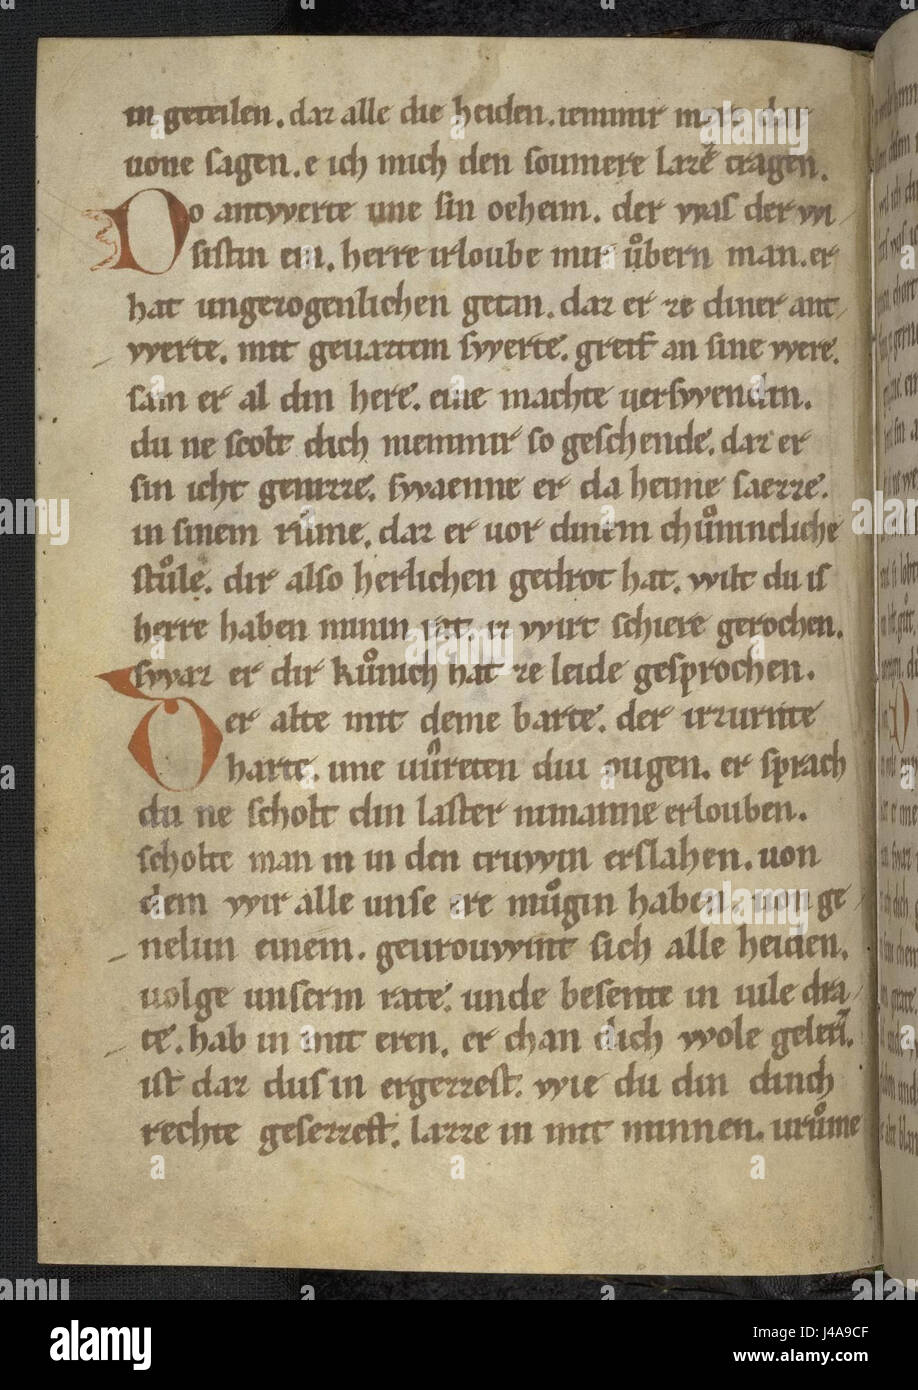 in geteilen. daz alle die heiden. iemmir mait dar
uone sagen. e ich mich den soumere lazē tragen.
Do antwerte ime sin oeheim. der was der wi
sistin ein. herre irloube mir ůbern man. er
hat ungezogenlichen getan. daz er ze diner ant
werte. mit geuaztem swerte. greif an sine were.
sam er al din here. eine machte uerswendin.
du ne scolt dich niemmir so geschende. daz er
sin icht genizze. swaenne er da heime saezze.
in sinem růme. daz er uor dinem chůninchliche
stůle. dir also herlichen gedrot hat. wilt du is
herre haben minin rat. iz wirt schiere gerochen.
swaz er dir kůnich hat ze leide gesprochen.
Der alte mit deme barte. der irzurnte
harte. ime uůreten diu ougen. er sprach
du ne scholt din laster nimanne erlouben.
scholte man in in den truwin erslahen. uon
dem wir alle unse ere můgin haben. uon ge
nelun einem. geurouwint sich alle heiden.
uolge unserm rate. unde besente in uile dra
te. hab in mit eren. er chan dich wole gelerī.
ist daz dus in ergezzest. wie du din dinch
rechte gesezzest. lazze in mit minnen. urůme
alamy
Image ID: J4A9CF
www.alamy.com